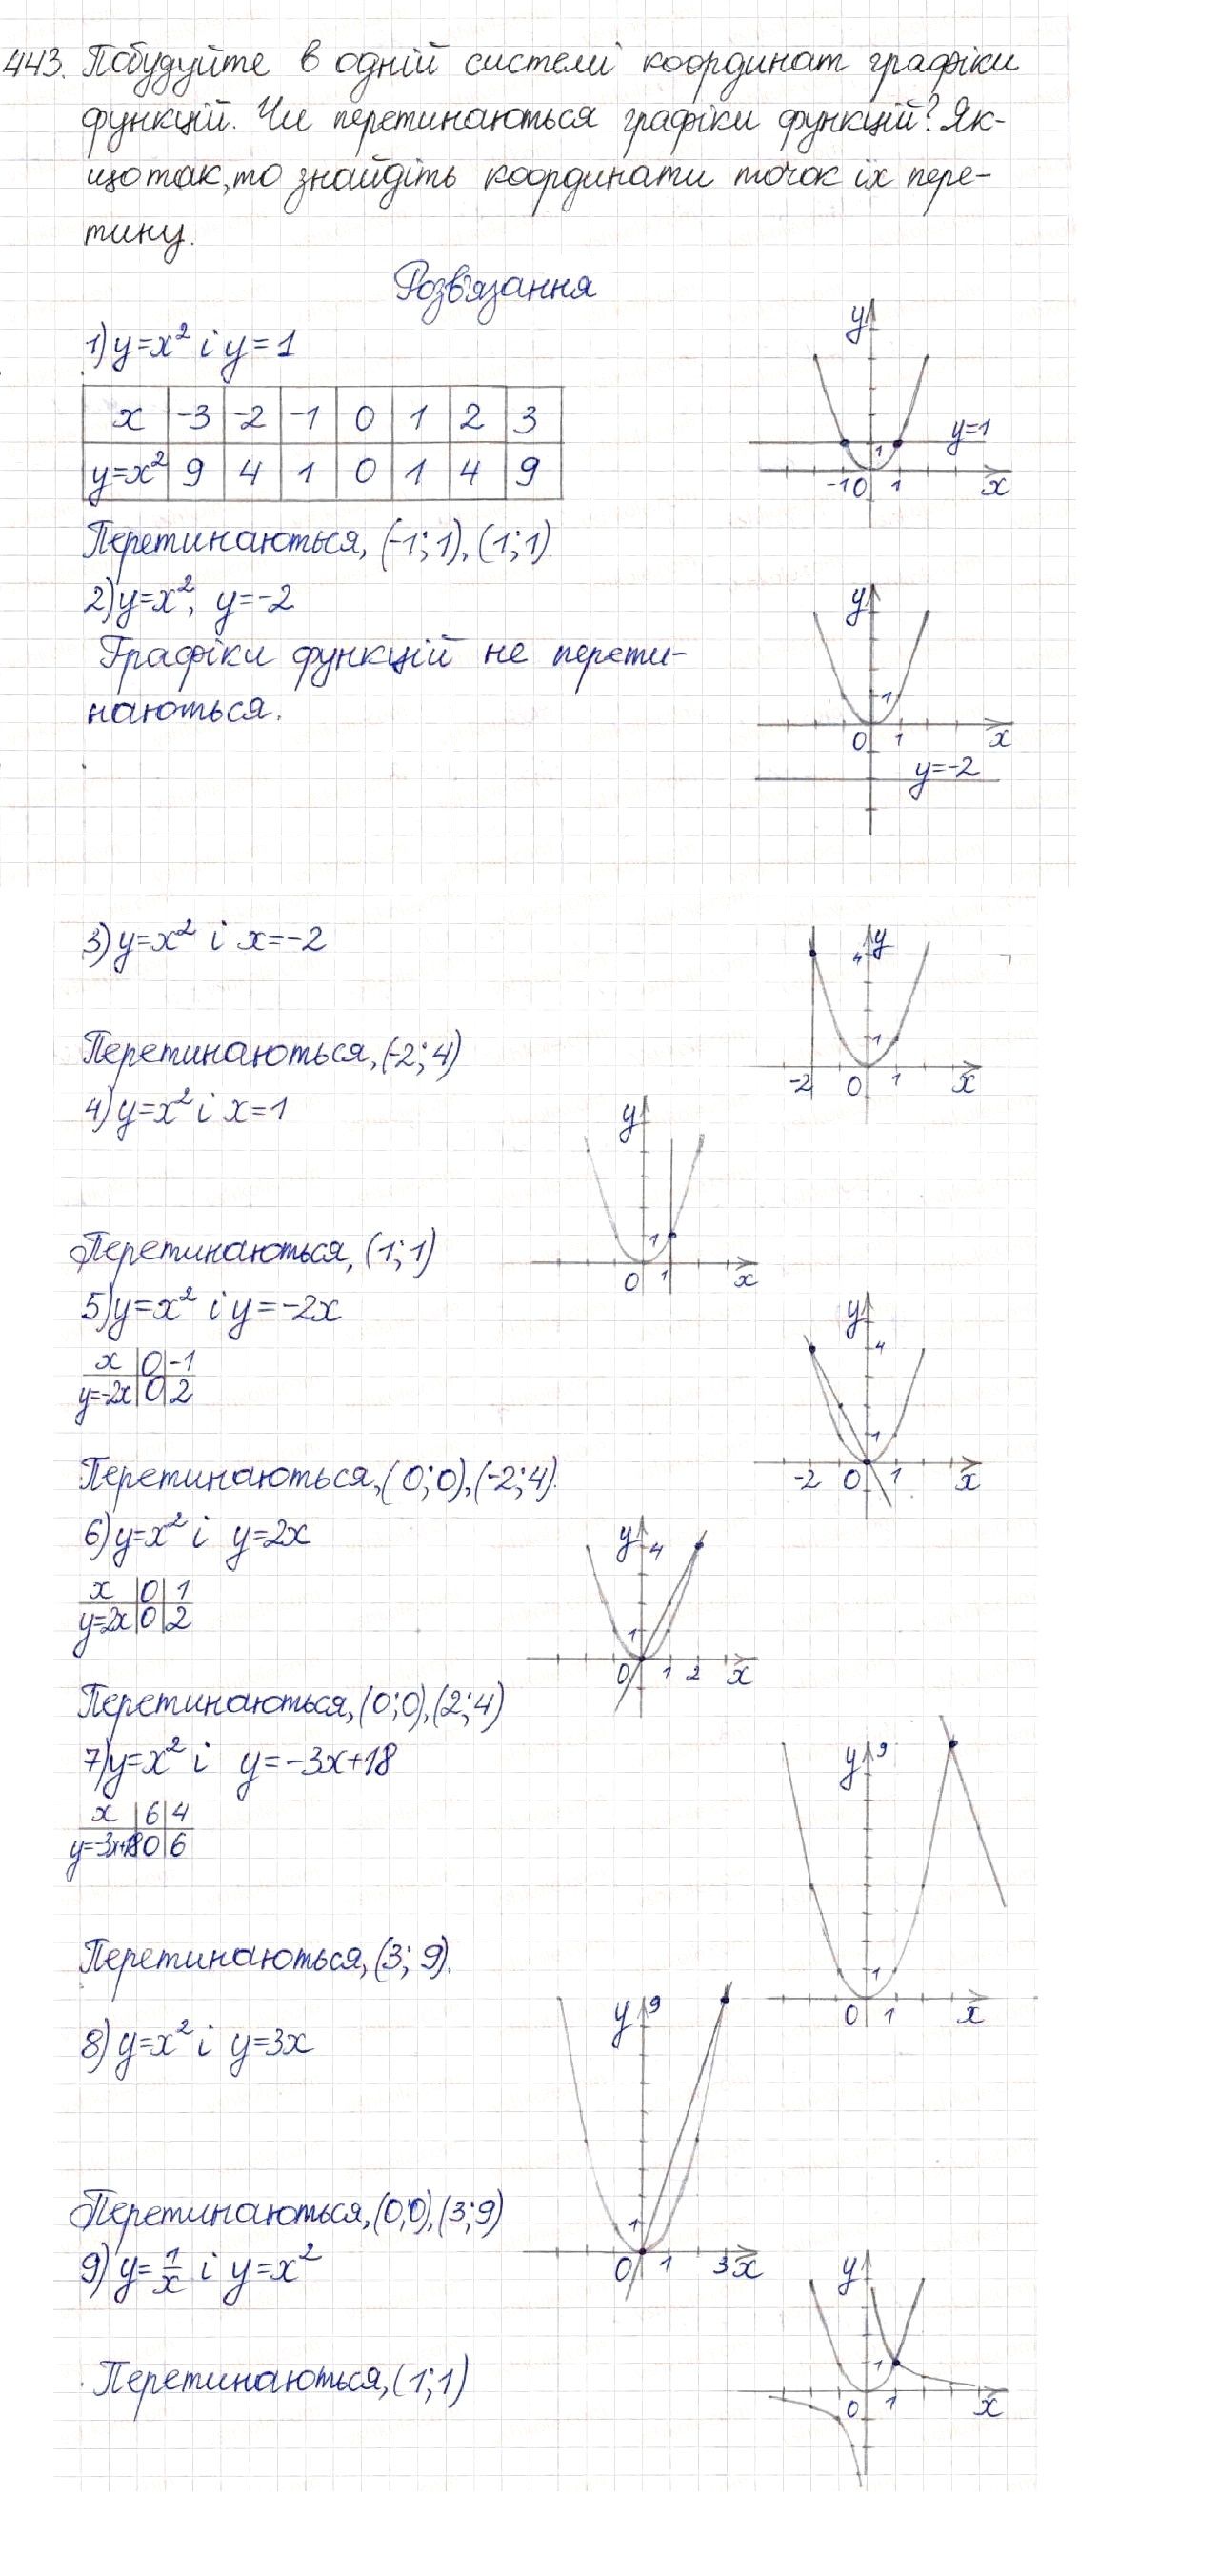 443. Побудуйте в одній системі координат графіки
функцій. Чи перетинаються графіки функцій? Як-
що так, то знайдіть координати точок їх пере-
тину.
Розв'язання
1) y=x² і y=1
x -3 -2 -1 0 1 2 3
y=x² 9 4 1 0 1 4 9
y
y=1
1
-1 0 1 x
Перетинаються, (-1; 1), (1; 1)
2) y=x², y=-2
Графіки функцій не перети-
наються.
y
1
0 1 x
y=-2
3) y=x² і x=-2
4 y
1
-2 0 1 x
Перетинаються, (-2; 4)
4) y=x² і x=1
y
1
0 1 x
Перетинаються, (1; 1)
5) y=x² і y=-2x
x 0 -1
y=-2x 0 2
y
4
1
-2 0 1 x
Перетинаються, (0; 0), (-2; 4).
6) y=x² і y=2x
x 0 1
y=2x 0 2
y 4
1
0 1 2 x
Перетинаються, (0; 0), (2; 4)
7) y=x² і y=-3x+18
x 6 4
y=-3x+18 0 6
y 9
1
0 1 x
Перетинаються, (3; 9).
8) y=x² і y=3x
y 9
1
0 1 3 x
Перетинаються, (0; 0), (3; 9)
9) y=1/x і y=x²
y
1
0 1 x
Перетинаються, (1; 1)